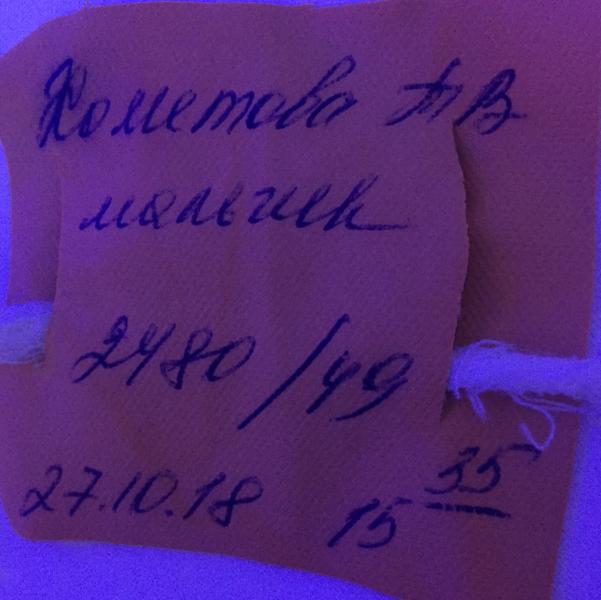 Кометова АВ
мальчик
2480/49
27.10.18 15 35